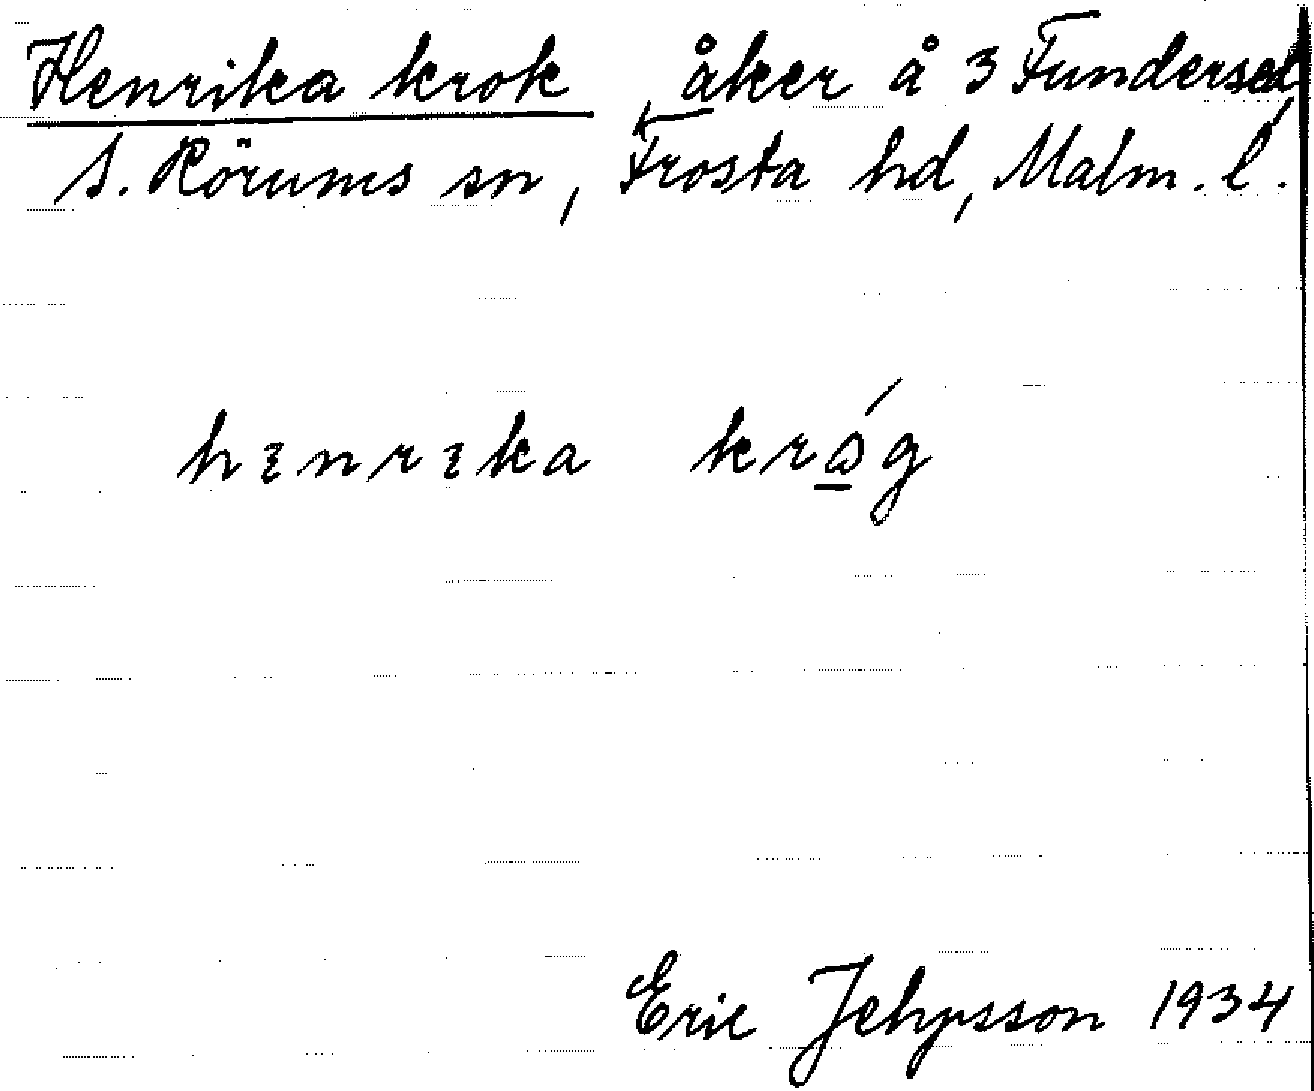 Henrika krok åker å 3 Fundersed,
S. Rörums sn, Frosta hd, Malm. l.
hɛnrɛka krǫ́g
Eric Jehpsson 1934